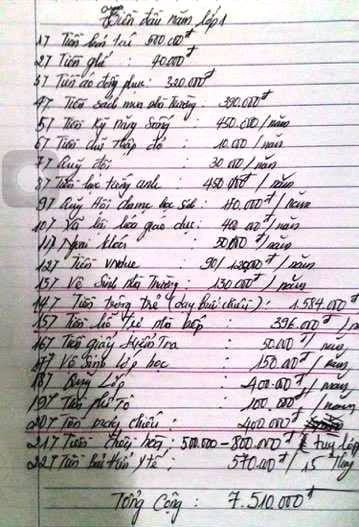 Tiền đầu năm lớp 1
1/ Tiền bán trú 500.000đ
2/ Tiền ghế : 40.000đ
3/ Tiền áo đồng phục : 320.000đ
4/ Tiền sách mua nhà trường : 390.000đ
5/ Tiền kỹ năng sống : 450.000 / năm
6/ Tiền chữ thập đỏ : 10.000 / năm
7/ Quỹ đội : 30.000 / năm
8/ Tiền học tiếng anh : 450.000đ / năm
9/ Quỹ Hội danh học sinh : 150.000đ / năm
10/ Xã hội hóa giáo dục : 400.000đ / năm
11/ khóa : 50.000đ / năm
12/ Tiền vnedu : 90 / đ / năm
13/ Vệ Sinh nhà Trường : 130.000đ / năm
14/ Tiền trông trẻ (dạy buổi chiều) : 1.584.000đ
15/ Tiền hỗ Trợ nhà bếp : 396.000đ / năm
16/ Tiền giấy kiểm Tra : 50.000đ / năm
17/ Vệ Sinh lớp học : 150.000đ / năm
18/ Quỹ Lớp : 400.000đ / năm
19/ Tiền phô Tô : 100.000đ / năm
20/ Tiền chiếu : 400.000đ
21/ Tiền : 500.000-800.000đ ( tuỳ lớp
22/ Tiền bảo hiểm Y tế : 570.000đ / 15 Tháng
Tổng Cộng : 7.510.000đ